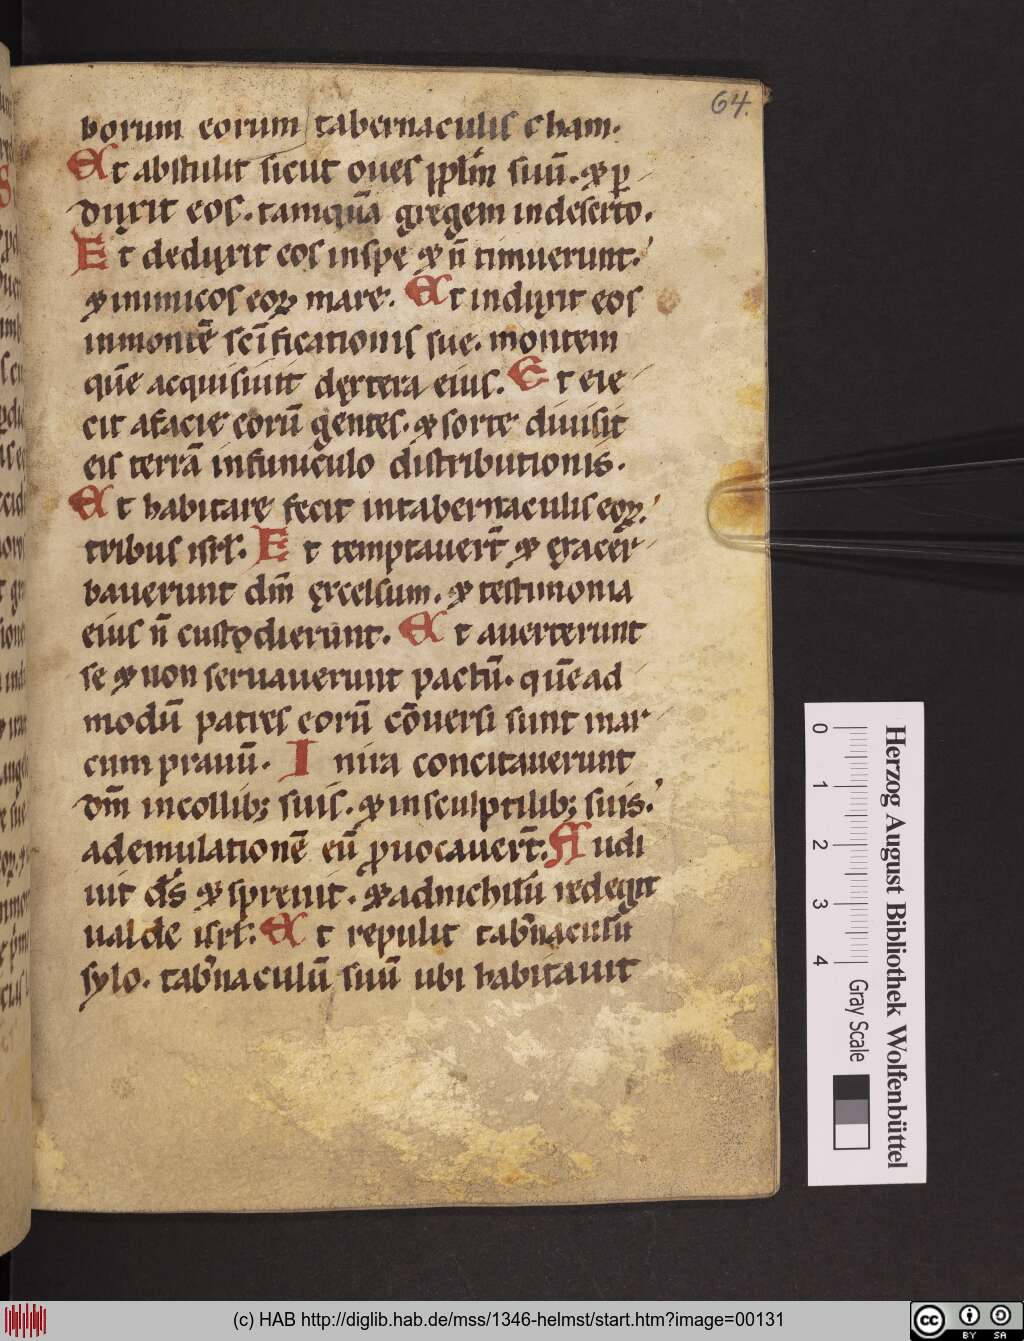 64.
borum eorum tabernaculis cham.
Et abstulit sicut oues ppl̄m suū. ⁊ p̱
duxit eos. tamquā gregem in deserto.
Et deduxit eos in spe ⁊ n̄ timuerunt.
⁊ inimicos eoꝝ mare. Et induxit eos
in montē sc̄ificationis sue. montem
quē acquisiuit dextera eius. Et eie
cit a facie eorū gentes. ⁊ sorte diuisit
eis terrā in funiculo distributionis.
Et habitare fecit in tabernaculis eoꝝ.
tribus isrl̄. Et temptauer̄t ⁊ exacer
bauerunt dm̄ excelsum. ⁊ testimonia
eius n̄ custodierunt. Et auerterunt
se ⁊ non seruauerunt pactū. quēad
modū patres eorū cōuersi sunt in ar
cum prauū. In ira concitauerunt
dm̄ in collibꝫ suis. ⁊ in sculptilibꝫ suis.
ad emulationē eū ꝓuocauer̄t. Audi
uit ds̄ ⁊ spreuit. ⁊ ad nichilū redegit
ualde isrl̄. Et repulit tab̄naculū
sylo. tab̄naculū suū ubi habitauit
Herzog August Bibliothek Wolfenbüttel
0 1 2 3 4 Gray Scale
(c) HAB http://diglib.hab.de/mss/1346-helmst/start.htm?image=00131
cc BY SA